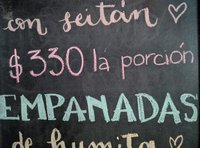 con seitán
$330 la porción
EMPANADAS
de humita